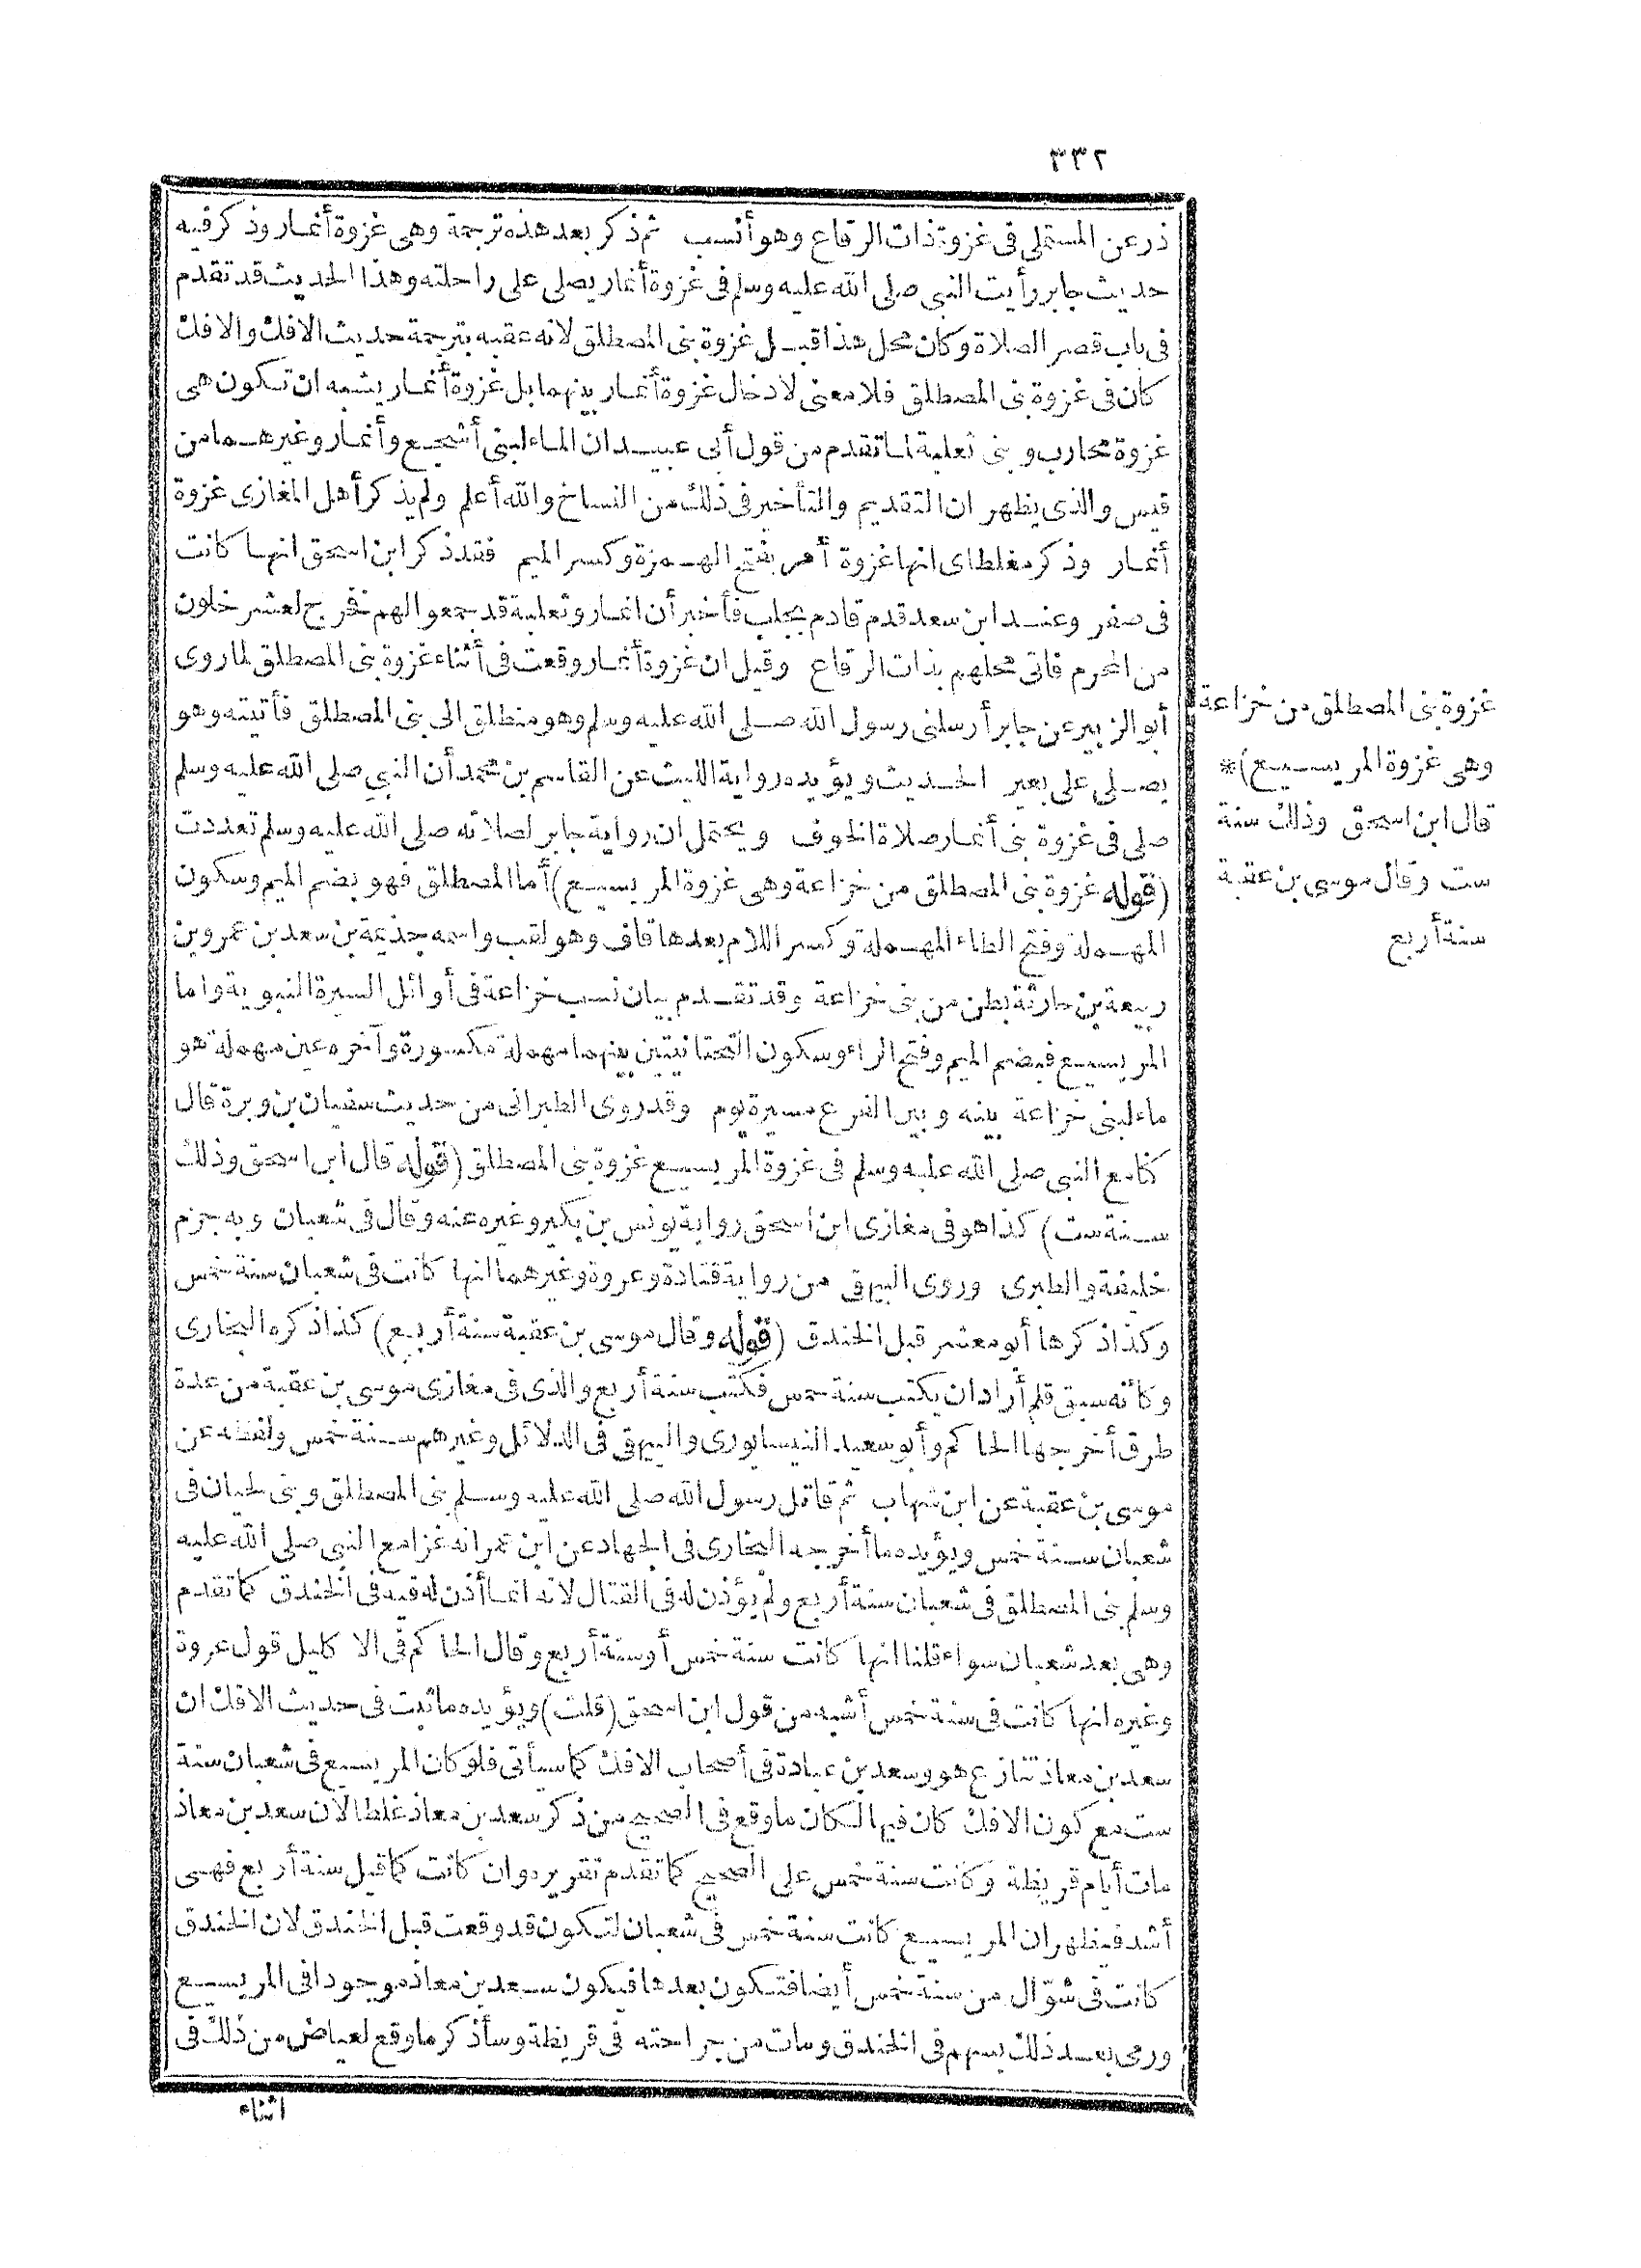 ٣٣٢
ذر عن المستملى فى غزوة ذات الرقاع وهو أنسب ثم ذكر بعد هذه ترجمة وهى غزوة أنمار وذكر فيه
حديث جابر رأيت النبى صلى الله عليه وسلم فى غزوة أنمار يصلى على راحلته وهذا الحديث قد تقدم
فى باب قصر الصلاة وكان محل هذا قبل غزوة بنى المصطلق لانه عقبه بترجمة حديث الافك والافك
كان فى غزوة بنى المصطلق فلا معنى لادخال غزوة أنمار بينهما بل غزوة أنمار يشبه ان تكون هى
غزوة محارب وبنى ثعلبة لما تقدم من قول أبى عبيد ان الماء لبنى أشجع وأنمار وغيرهما من
قيس والذى يظهر ان التقديم والتأخير فى ذلك من النساخ والله أعلم ولم يذكر أهل المغازى غزوة
أنمار وذكر مغلطاى انها غزوة أمر بفتح الهمزة وكسر الميم فقد ذكر ابن اسحق انها كانت
فى صفر وعند ابن سعد قدم قادم بجلب فأخبر أن انمار وثعلبة قد جمعوا لهم فخرج لعشر خلون
من المحرم فاتى محلهم بذات الرقاع وقيل ان غزوة أنمار وقعت فى أثناء غزوة بنى المصطلق لما روى
أبو الزبير عن جابر أرسلنى رسول الله صلى الله عليه وسلم وهو منطلق الى بنى المصطلق فأتيته وهو
يصلى على بعير الحديث ويؤيده رواية الليث عن القاسم بن محمد أن النبى صلى الله عليه وسلم
صلى فى غزوة بنى أنمار صلاة الخوف ويحتمل ان رواية جابر لصلاته صلى الله عليه وسلم تعددت
(قوله غزوة بنى المصطلق من خزاعة وهى غزوة المريسيع) أما المصطلق فهو بضم الميم وسكون
المهملة وفتح الطاء المهملة وكسر اللام بعدها قاف وهو لقب واسمه جذيمة بن سعد بن عمرو بن
ربيعة بن حارثة بطن من بنى خزاعة وقد تقدم بيان نسب خزاعة فى أوائل السيرة النبوية واما
المريسيع فبضم الميم وفتح الراء وسكون التحتانيتين بينهما مهملة مكسورة وآخره عين مهملة هو
ماء لبنى خزاعة بينه وبين الفرع مسيرة يوم وقد روى الطبرانى من حديث سفيان بن وبرة قال
كنا مع النبى صلى الله عليه وسلم فى غزوة المريسيع غزوة بنى المصطلق (قوله قال ابن اسحق وذلك
سنة ست) كذا هو فى مغازى ابن اسحق رواية يونس بن بكير وغيره عنه وقال فى شعبان وبه جزم
خليفة والطبرى وروى البيهقى من رواية قتادة وعروة وغيرهما انها كانت فى شعبان سنة خمس
وكذا ذكرها أبو معشر قبل الخندق (قوله وقال موسى بن عقبة سنة أربع) كذا ذكره البخارى
وكأنه سبق قلم أراد ان يكتب سنة خمس فكتب سنة أربع والذى فى مغازى موسى بن عقبة من عدة
طرق أخرجها الحاكم وأبو سعيد النيسابورى والبيهقى فى الدلائل وغيرهم سنة خمس ولفظه عن
موسى بن عقبة عن ابن شهاب ثم قاتل رسول الله صلى الله عليه وسلم بنى المصطلق وبنى لحيان فى
شعبان سنة خمس ويؤيده ما أخرجه البخارى فى الجهاد عن ابن عمر انه غزا مع النبى صلى الله عليه
وسلم بنى المصطلق فى شعبان سنة أربع ولم يؤذن له فى القتال لانه انما أذن له فيه فى الخندق كما تقدم
وهى بعد شعبان سواء قلنا انها كانت سنة خمس أو سنة أربع وقال الحاكم فى الاكليل قول عروة
وغيره انها كانت فى سنة خمس أشبه من قول ابن اسحق (قلت) ويؤيده ما ثبت فى حديث الافك ان
سعد بن معاذ تنازع هو وسعد بن عبادة فى أصحاب الافك كما سيأتى فلو كان المريسيع فى شعبان سنة
ست مع كون الافك كان فيها لكان ما وقع فى الصحيح من ذكر سعد بن معاذ غلطا لان سعد بن معاذ
مات أيام قريظة وكانت سنة خمس على الصحيح كما تقدم تقريره وان كانت كما قيل سنة أربع فهى
أشد فيظهر ان المريسيع كانت سنة خمس فى شعبان لتكون قد وقعت قبل الخندق لان الخندق
كانت فى شوّال من سنة خمس أيضا فتكون بعدها فيكون سعد بن معاذ موجودا فى المريسيع
ورمى بعد ذلك بسهم فى الخندق ومات من جراحته فى قريظة وسأذكر ما وقع لعياض من ذلك فى
اثناء
غزوة بنى المصطلق من خزاعة
وهى غزوة المريسيع)*
قال ابن اسحق وذلك سنة
ست وقال موسى بن عقبة
سنة أربع